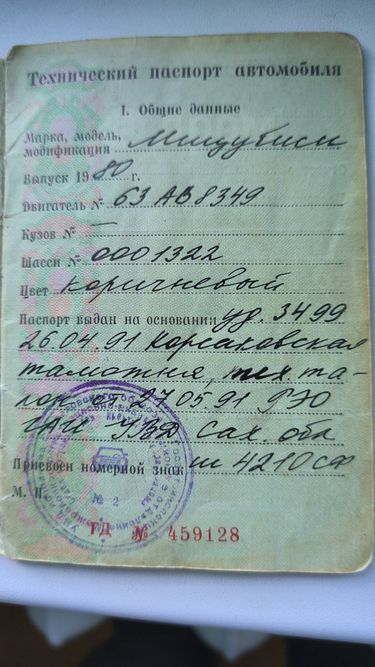 Технический паспорт автомобиля
I. Общие данные
Марка, модель,
модификация Мицубиси
Выпуск 1980 г.
Двигатель № 63 АВ8349
Кузов № —
Шасси № 0001322
Цвет коричневый
Паспорт выдан на основании уд. 3499
26.04.91 Корсаковская
таможня, тех та-
лон от 27.05.91 РЭО
ГАИ УВД Сах. обл
Присвоен номерной знак ш 4210 СФ
М. П.
№ 2
ТД № 459128